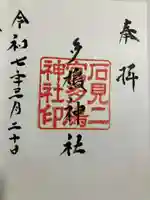 奉拝
多鳩神社
石見二
宮多鳩
神社印
令和七年三月二十日